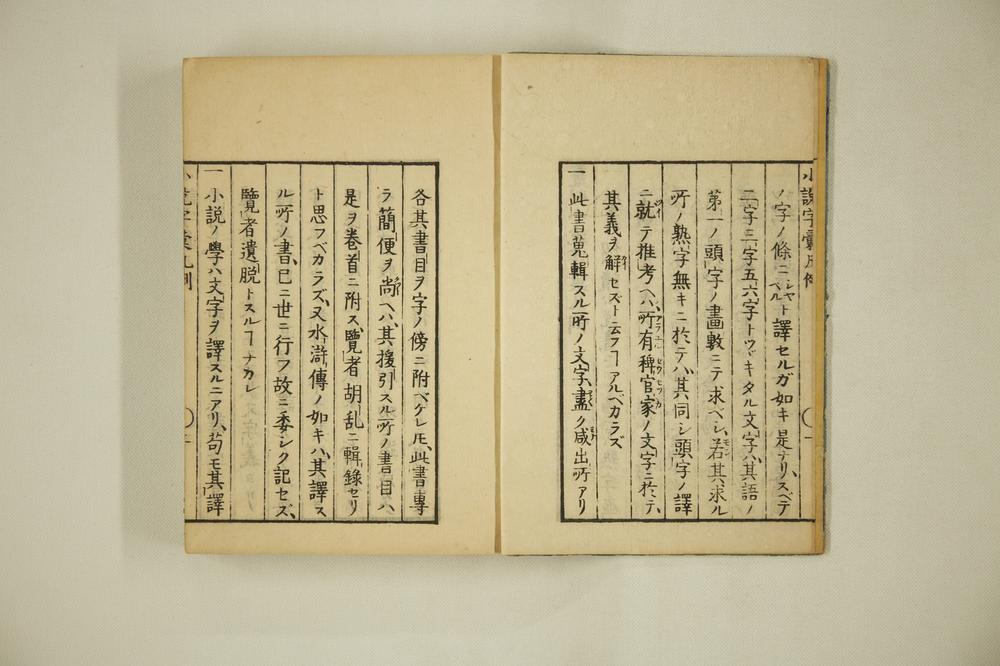 小說字彙凡例
ノ字ノ條ニシヤベルト譯セルガ如キ是ナリ、スベテ
二字三字五六字トツヾキタル文字ハ、其語ノ
第一ノ頭字ノ畫數ニテ求ベシ、若其求ル
所ノ熟字無キニ於テハ、其同シ頭字ノ譯
ニ就テ推考ヘハ、所有稗官家ノ文字ニ於テ、
其義ヲ解セズト云フヿアルベカラズ
一此書蒐輯スル所ノ文字、盡ク咸出所アリ
各其書目ヲ字ノ傍ニ附ベケレ𪜈、此書專
ラ簡便ヲ尚ヘハ、其援引スル所ノ書目ハ、
是ヲ卷首ニ附ス、覽者胡乱ニ輯錄セリ
ト思フベカラズ、又水滸傳ノ如キハ、其譯ス
ル所ノ書、已ニ世ニ行フ故ニ委シク記セズ、
覽者遺脱トスルヿナカレ
一小説ノ學ハ文字ヲ譯スルニアリ、苟モ其譯
小說字彙凡例